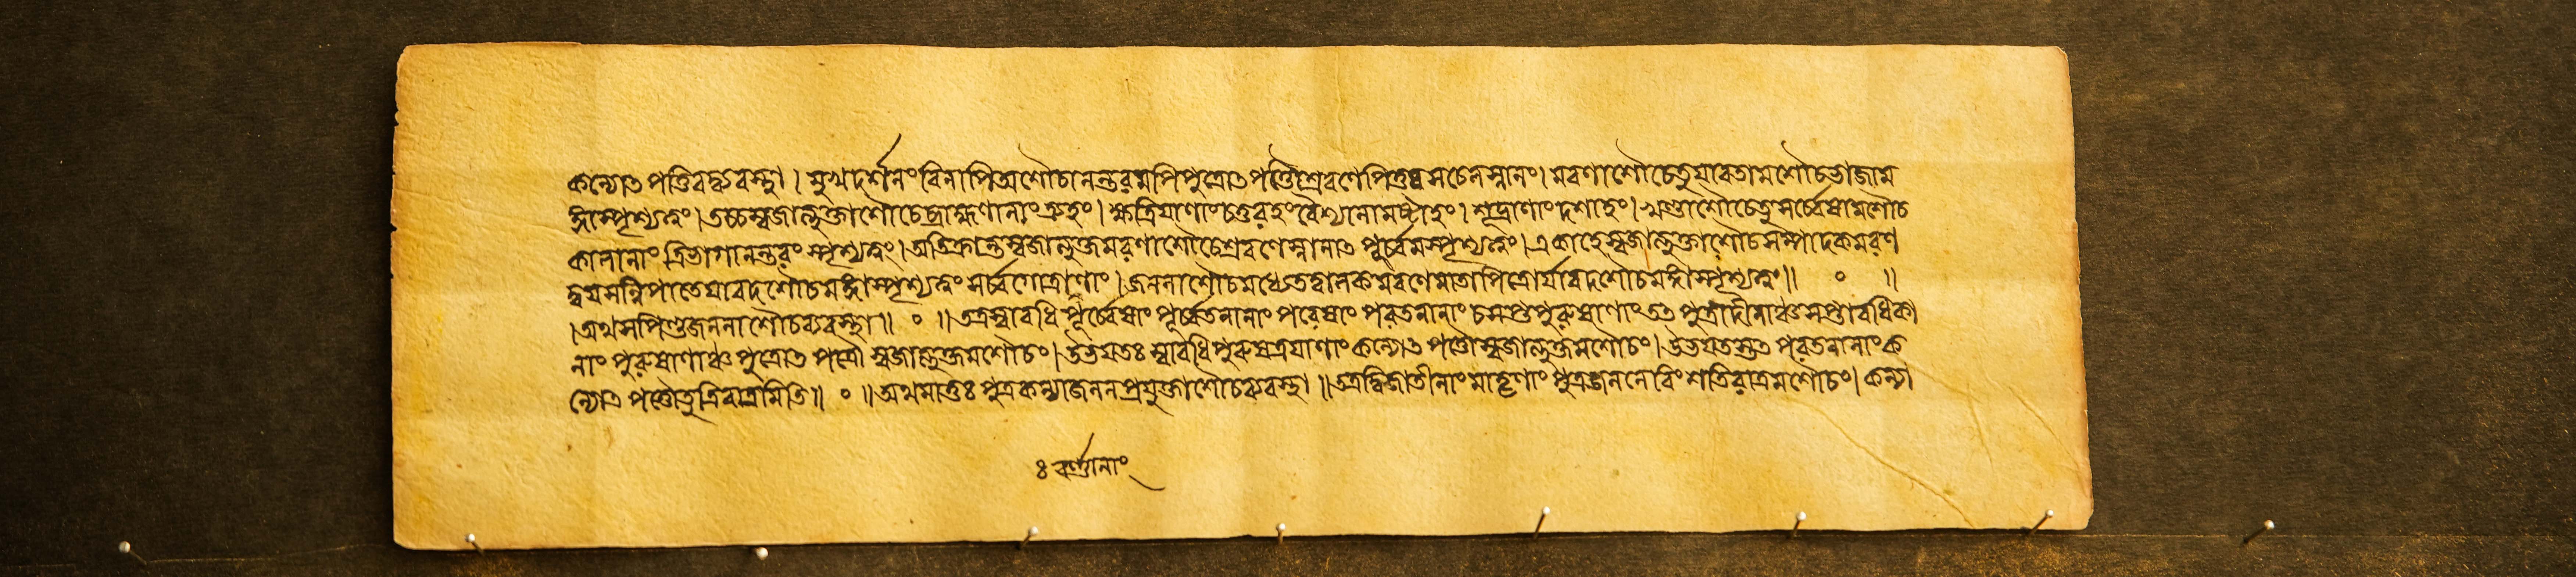 কন্যোৎপত্তিবদ্ব্যবস্থা। মুখদর্শনং বিনাপি অশৌচানন্তরমপি পুত্রোৎপত্তিশ্রবণে পিতুঃ সচেলস্নানং। মরণাশৌচে তু যাবতামশৌচভাজাম
ঙ্গাস্পৃশ্যত্বং। তচ্চ স্বজাত্যুক্তাশৌচে ব্রাহ্মণানাং ত্র্যহং। ক্ষত্রিয়াণাং চতুরহং বৈশ্যানামষ্টাহং। শূদ্রাণাং দশাহং। খণ্ডাশৌচে তু সর্ব্বেষামশৌচ
কালানাং ত্রিভাগানন্তরং স্পৃশ্যত্বং। অতিক্রান্তস্বজাত্যুক্তমরণাশৌচে শ্রবণে স্নানাৎ পূর্ব্বমস্পৃশ্যত্বং। একাহে স্বজাত্যুক্তাশৌচসম্পাদকমরণ
দ্বয়সন্নিপাতে যাবদশৌচমঙ্গাস্পৃশ্যত্বং সর্ব্বগোত্রাণাং। জননাশৌচমধ্যে তদ্বালকমরণে মাতাপিত্রোর্যাবদশৌচমঙ্গাস্পৃশ্যত্বং॥ ॰ ॥
।অথ সপিণ্ডজননাশৌচব্যবস্থা॥ ॰ ॥ তত্র স্বাবধি পূর্ব্বেষাং পূর্ব্বতনানাং পরেষাং পরতনানাং চ সপ্তপুরুষাণাং তৎপুত্রাদীনাঞ্চ সপ্তাবধিকা
নাং পুরুষাণাঞ্চ পুত্রোৎপত্তৌ স্বজাত্যুক্তমশৌচং। উভয়তঃ স্বাবধি পুরুষত্রয়াণাং কন্যোৎপত্তৌ স্বজাত্যুক্তমশৌচং। উভয়তস্তৎপরতনানাং ক
ন্যোৎপত্তৌ তু ত্রিরাত্রমিতি॥ ॰ ॥ অথ মাতুঃ পুত্রকন্যাজননপ্রযুক্তাশৌচব্যবস্থা॥ তত্র দ্বিজাতীনাং মাতৃণাং পুত্রজননে বিংশতিরাত্রমশৌচং। কন্যা
ঃ বর্ণানাং